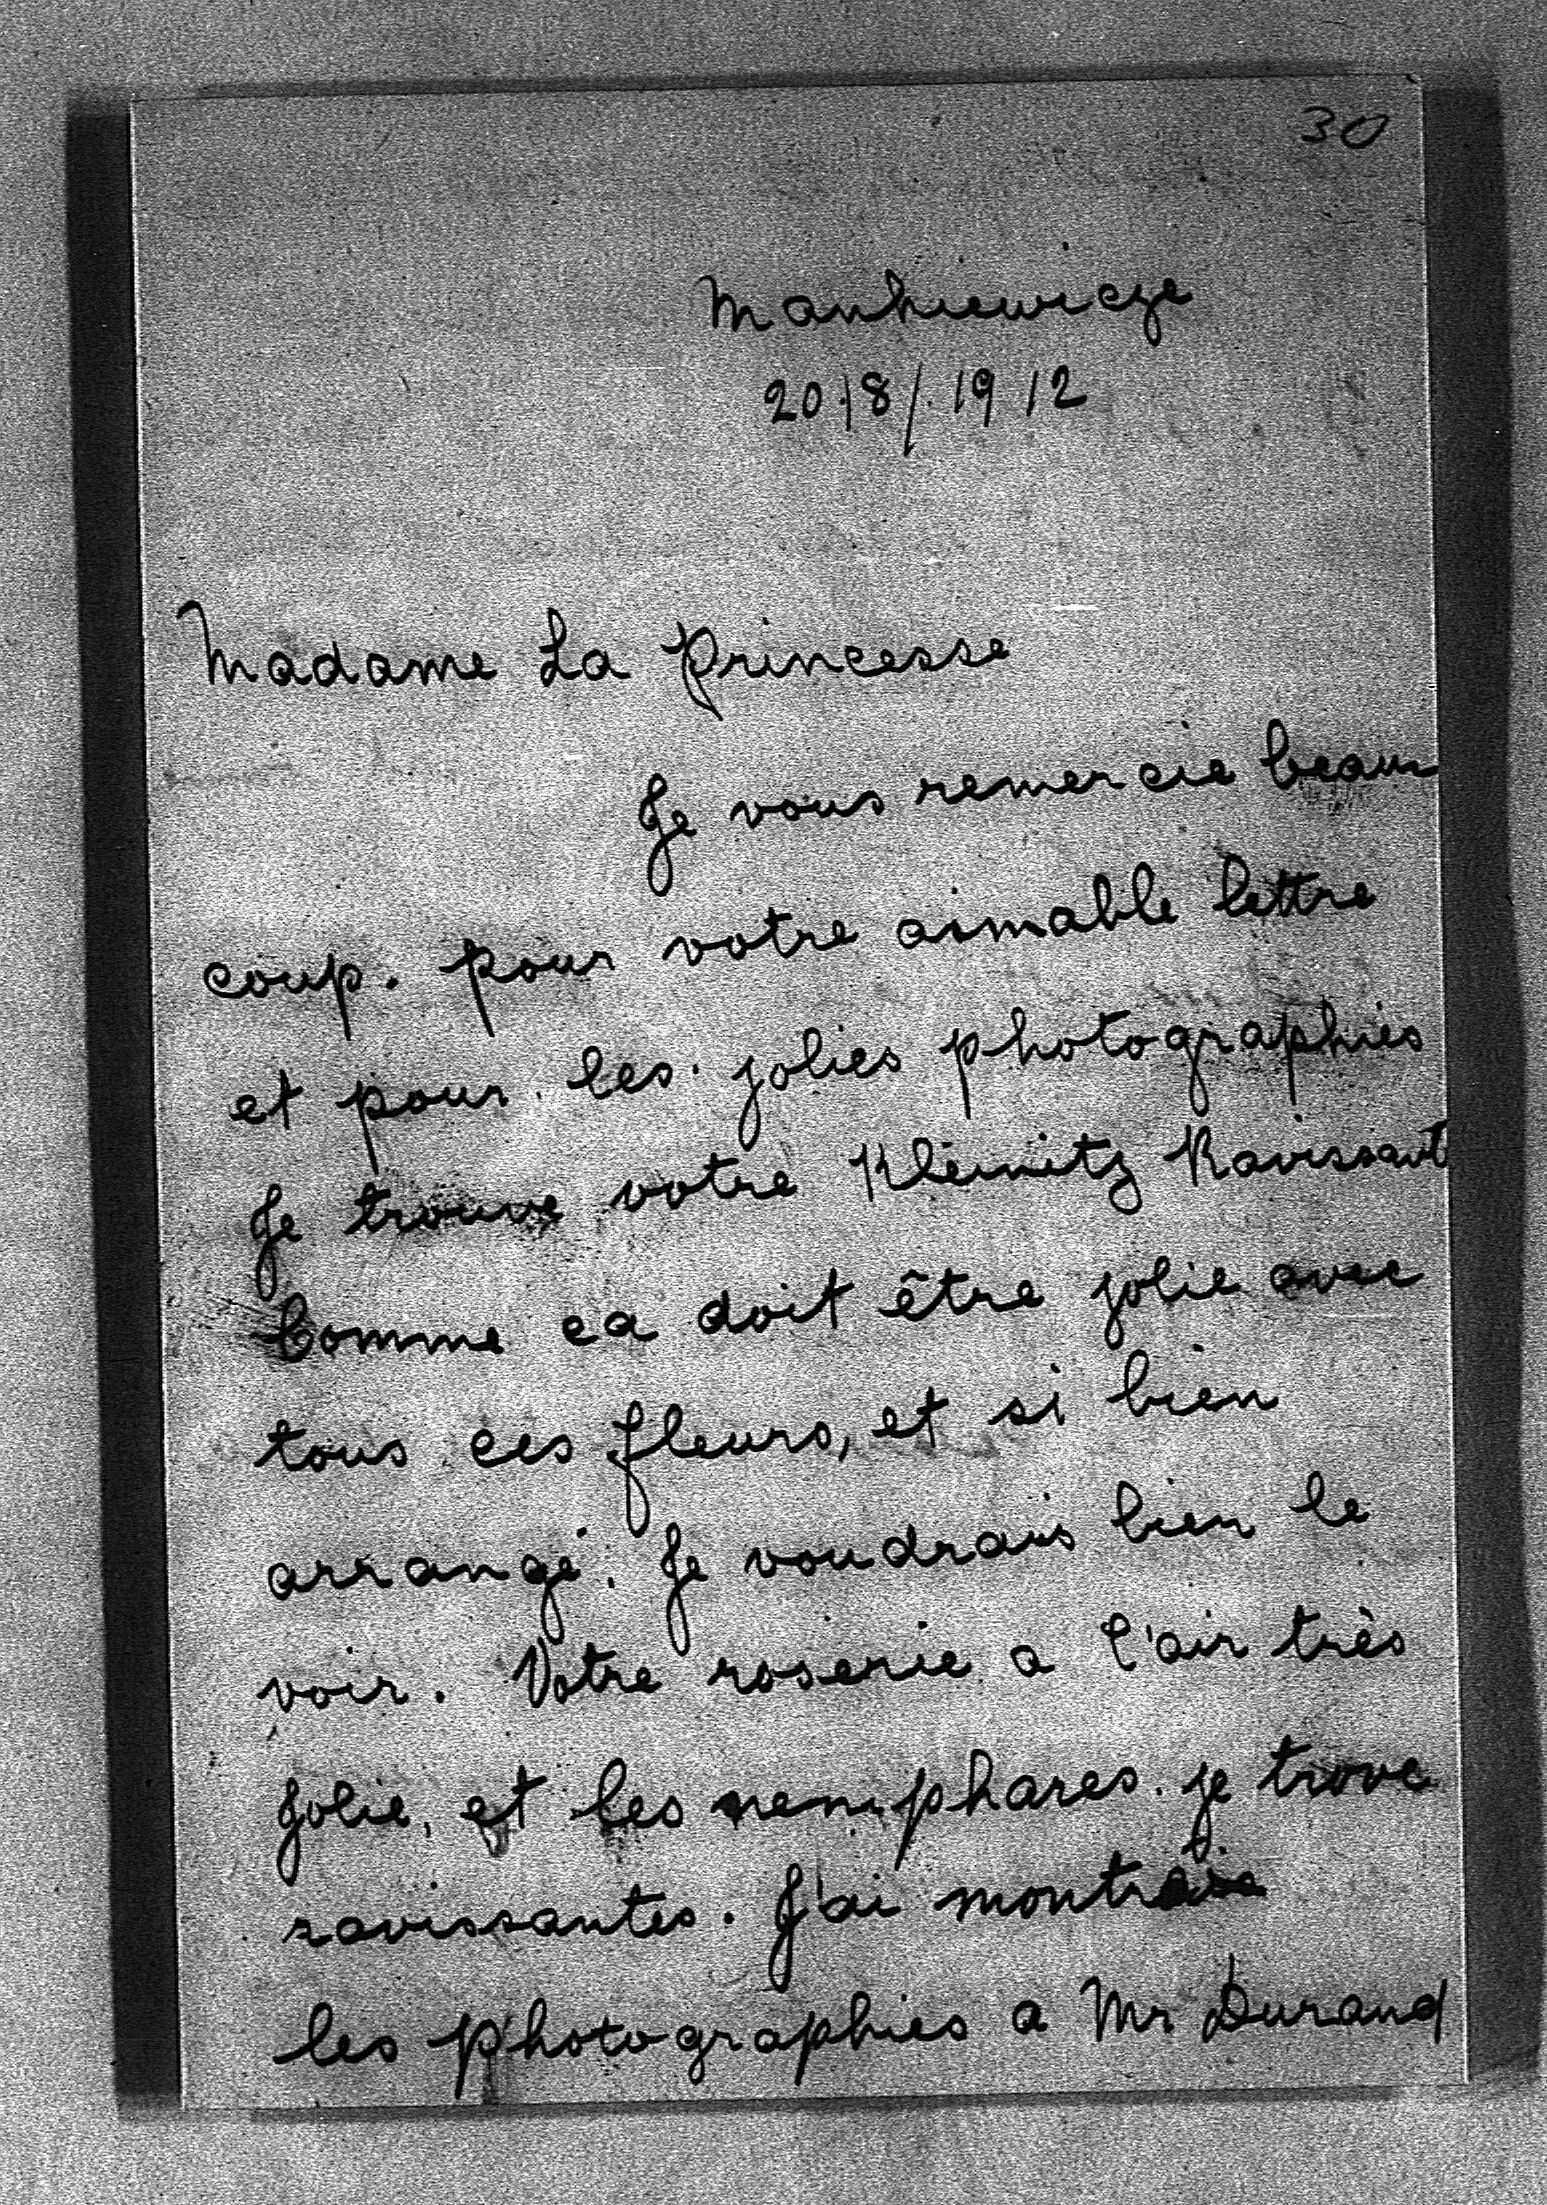 30
Mankiewicze
20/8/.1912
Madame La Princesse
Je vous remercie beau
coup. pour votre aimable lettre
et pour les jolies photographies
Je trouve votre Kleinitz Ravissant
Comme ca doit être jolie avec
tous ces fleurs, et si bien
arrangé. Je voudrais bien le
voir. Votre roserie a l'air très
jolie, et les nenuphares. je trove
ravissantes. J'ai
les photographies a Mr Durand